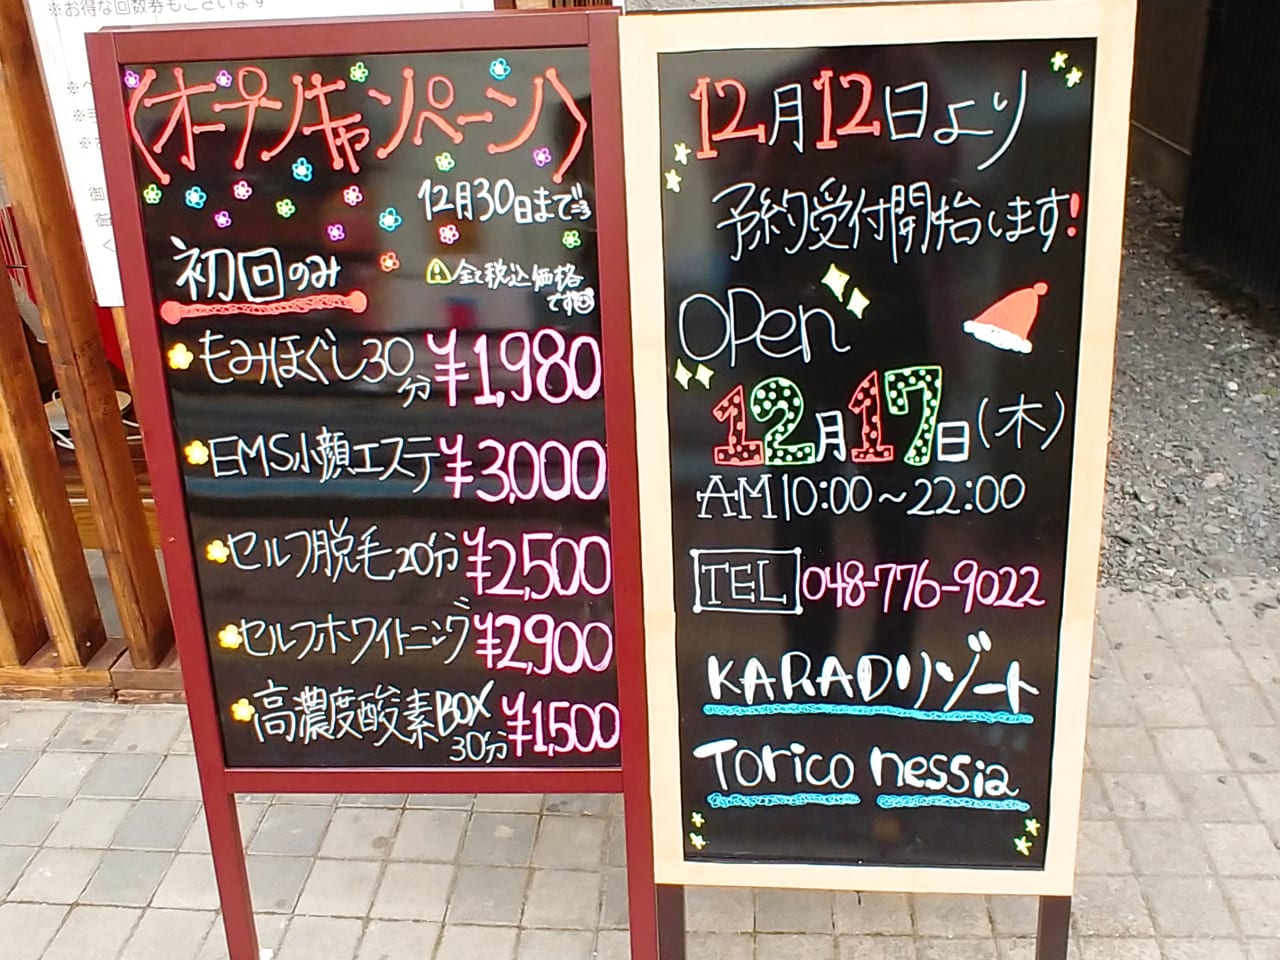 ※お得な回数券もございます
〈オープンキャンペーン〉
12月30日まで
初回のみ
全て税込価格
です
もみほぐし30分 ¥1,980
EMS小顔エステ ¥3,000
セルフ脱毛20分 ¥2,500
セルフホワイトニング ¥2,900
高濃度酸素BOX
30分 ¥1,500
12月12日より
予約受付開始します!
OPen
12月17日(木)
AM10:00~22:00
TEL 048-776-9022
KARADリゾート
Torico nessia